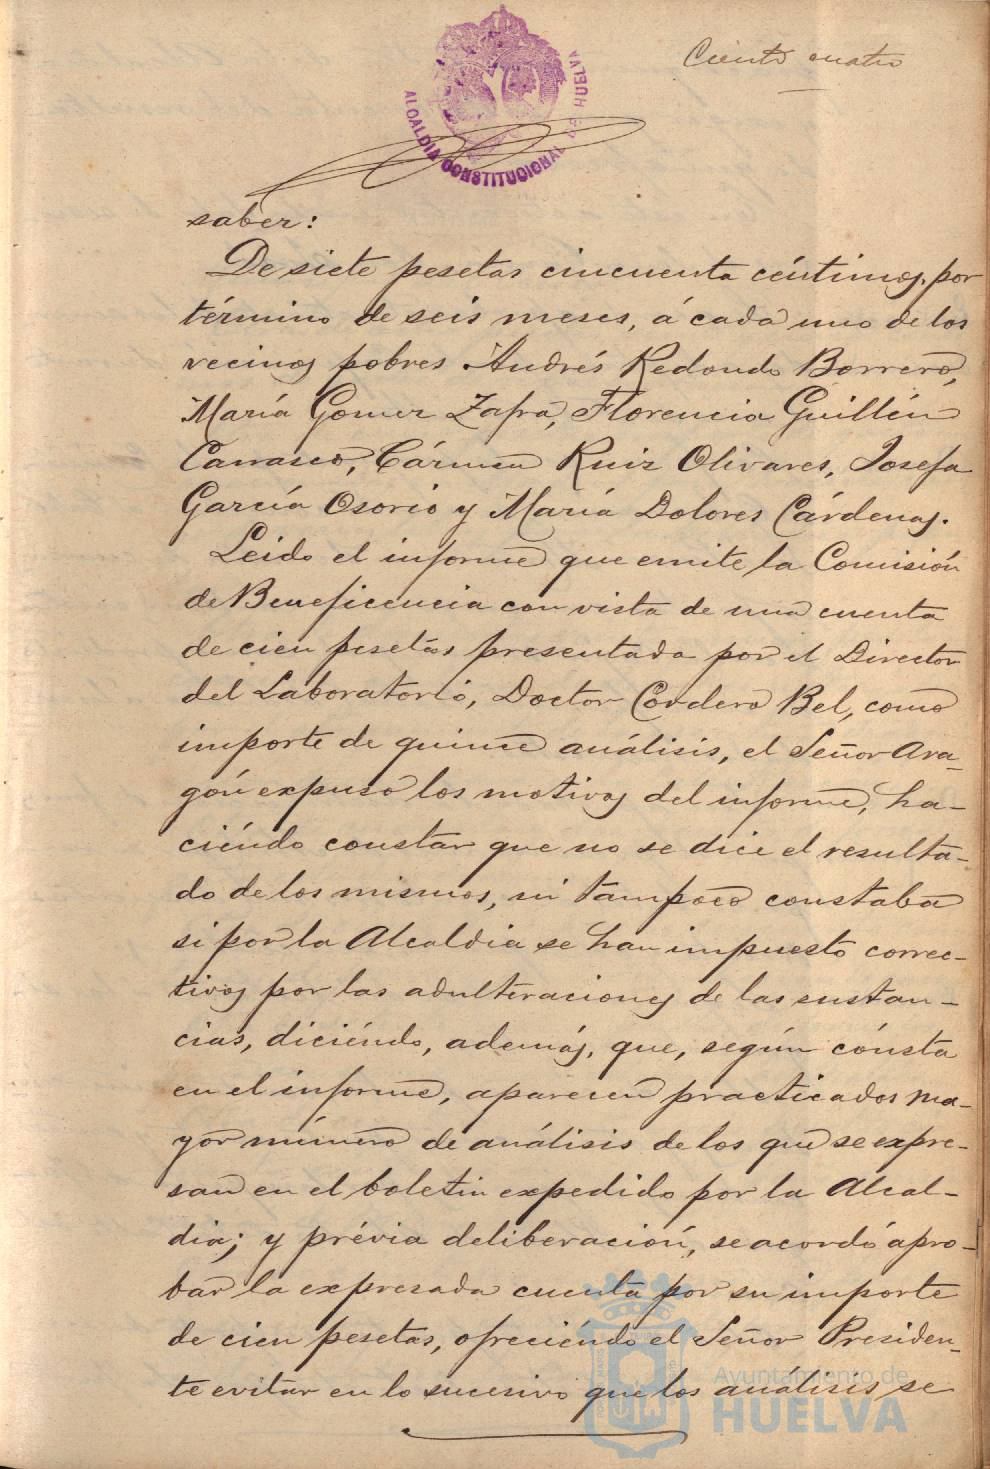 Ciento cuatro
ALCALDIA CONSTITUCIONAL DE HUELVA
saber:
De siete pesetas cincuenta céntimos, por
término de seis meses, á cada uno de los
vecinos pobres Andrés Redondo Borrero,
María Gomez Zafra, Florencia Guillén
Carrasco, Cármen Ruiz Olivares, Josefa
García Osorio y María Dolores Cárdenas.
Leido el informe que emite la Comisión
de Beneficencia con vista de una cuenta
de cien pesetas presentada por el Director
del Laboratorio, Doctor Cordero Bel, como
importe de quince análisis, el Señor Ara-
gón expuso los motivos del informe, ha-
ciéndo constar que no se dice el resulta-
do de los mismos, ni tampoco constaba
si por la Alcaldia se han impuesto correc-
tivos por las adulteraciones de las sustan-
cias, diciéndo, además, que, según cónsta
en el informe, aparecen practicados ma-
yor número de análisis de los que se expre-
san en el boletin expedido por la Alcal-
dia; y prévia deliberación, se acordó apro-
bar la expresada cuenta por su importe
de cien pesetas, ofreciéndo el Señor Presiden-
te evitar en lo sucesivo que los análisis se
Ayuntamiento de
HUELVA